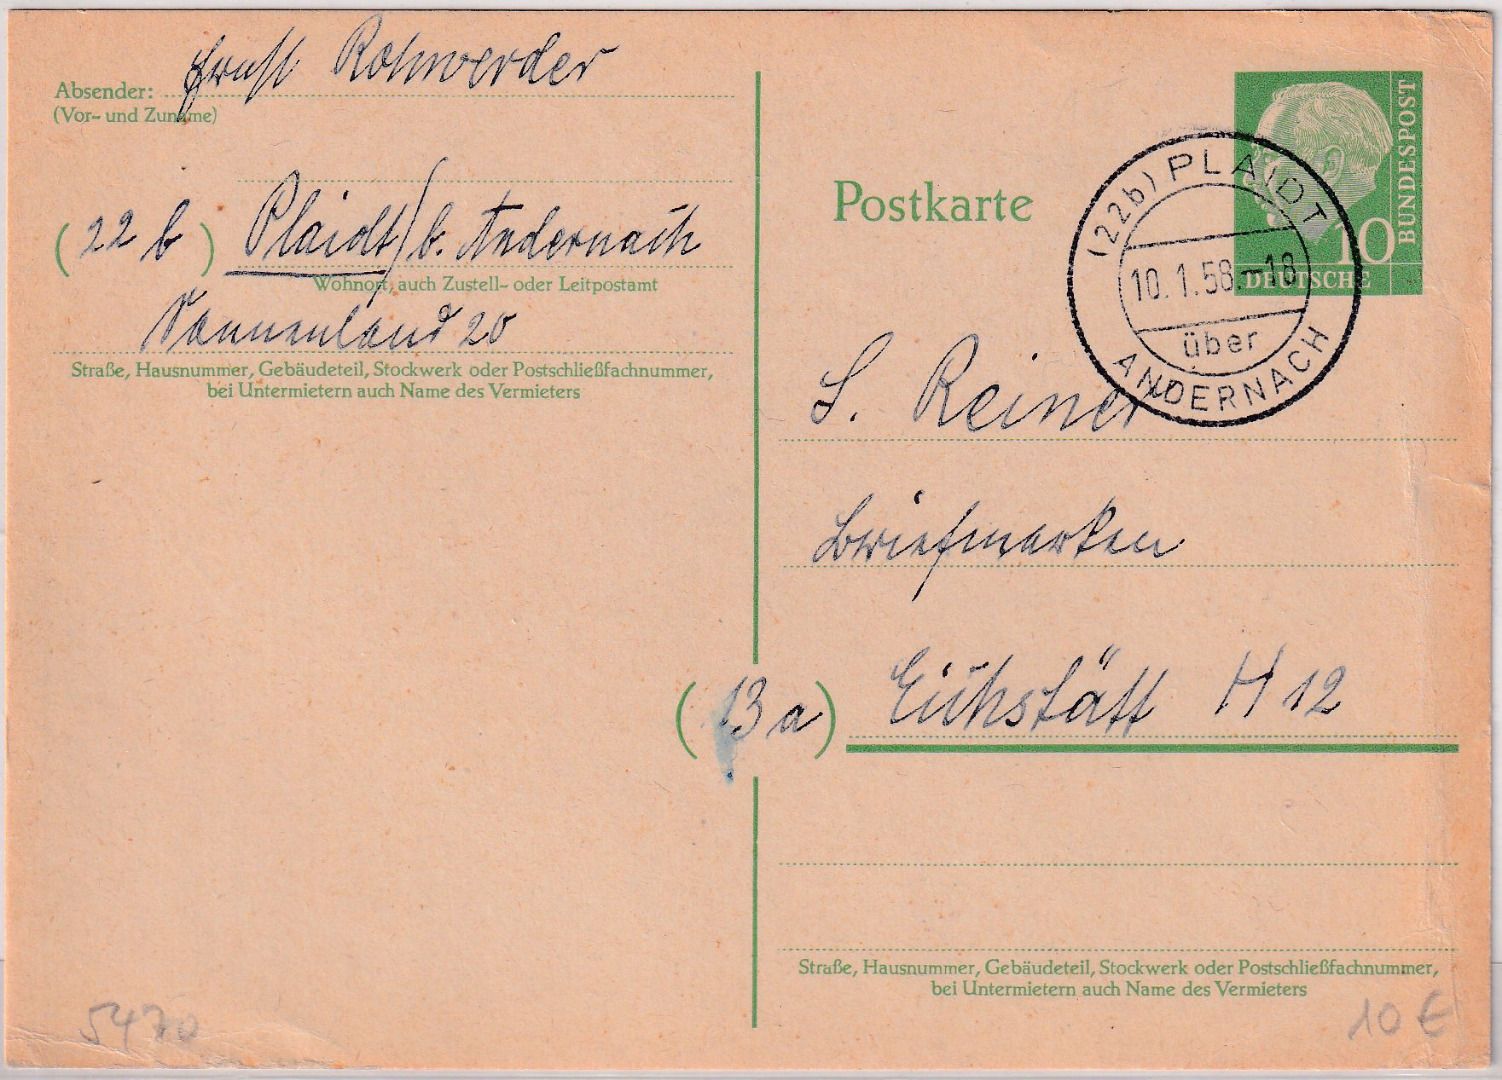 Absender: Ernst Rohwerder
(Vor- und Zuname)
(22 b) Plaidt/b. Andernach
Wohnort, auch Zustell- oder Leitpostamt
Sonnenland 20
Straße, Hausnummer, Gebäudeteil, Stockwerk oder Postschließfachnummer,
bei Untermietern auch Name des Vermieters
Postkarte
DEUTSCHE
BUNDESPOST
10
(22b) PLAIDT
10.1.58.-18
über
ANDERNACH
S. Reiner
Briefmarken
(13a) Eichstätt H 12
Straße, Hausnummer, Gebäudeteil, Stockwerk oder Postschließfachnummer,
bei Untermietern auch Name des Vermieters
5470
10 €